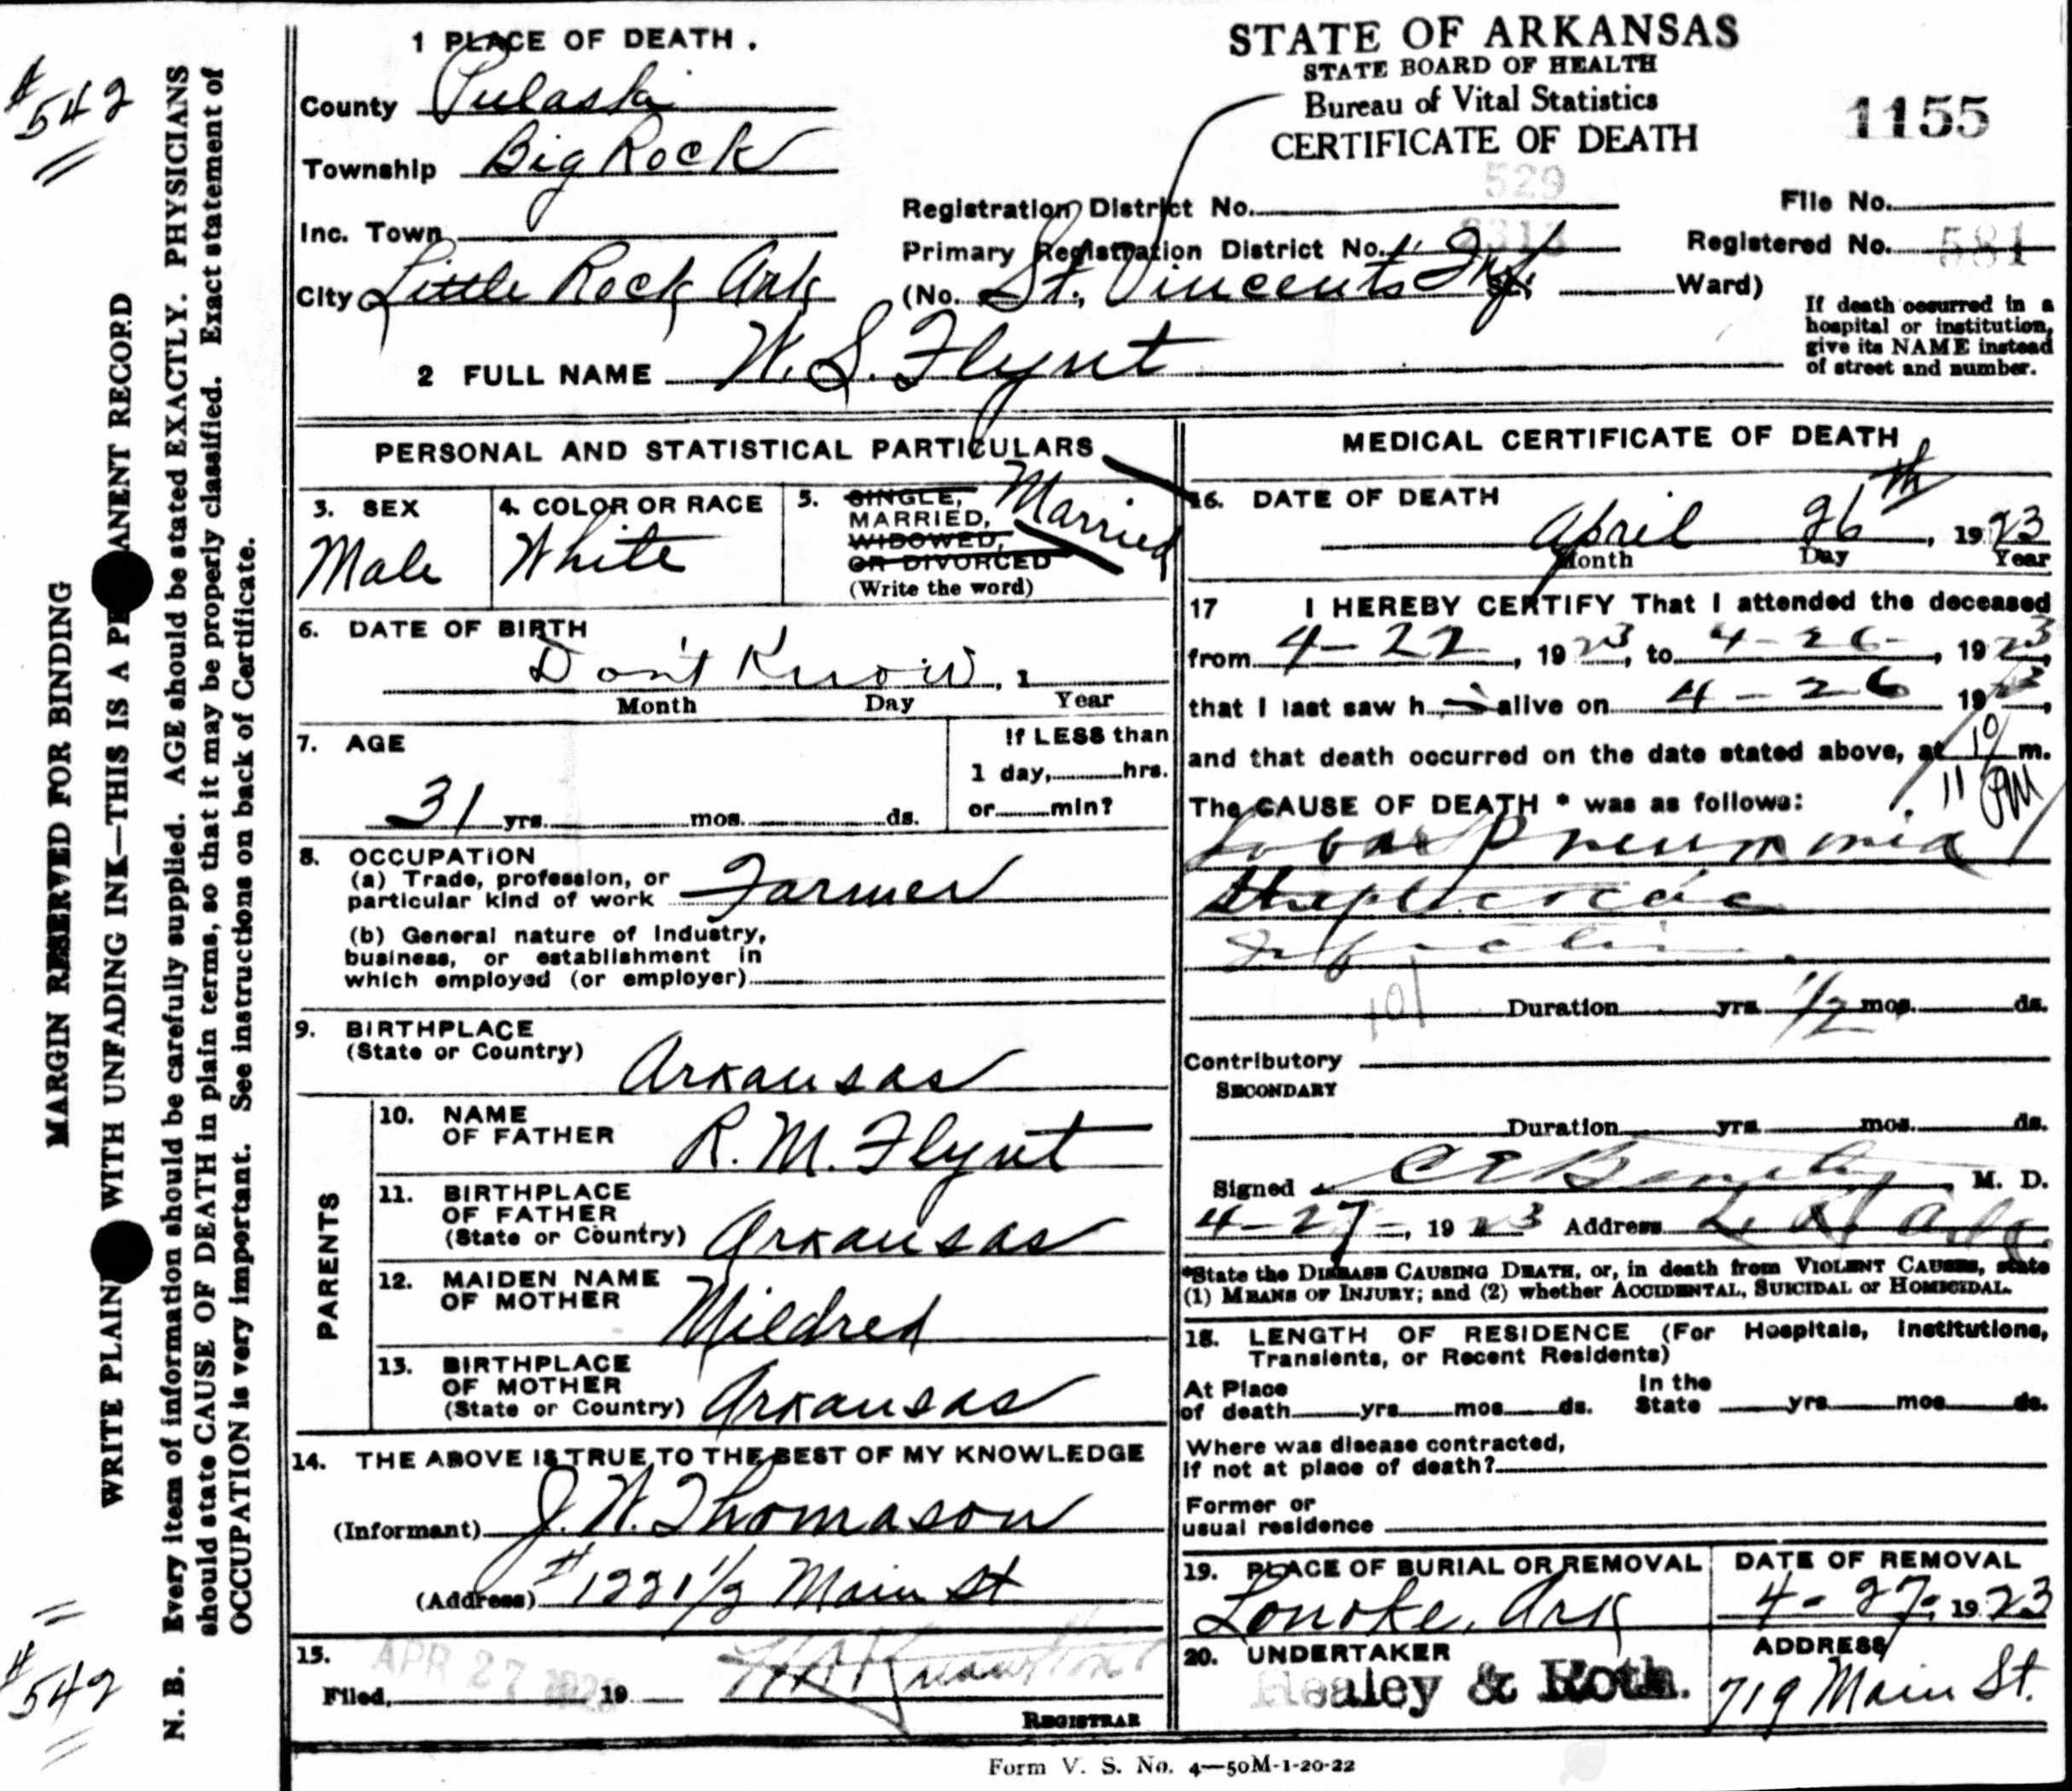 #542
MARGIN RESERVED FOR BINDING
WRITE PLAIN WITH UNFADING INK—THIS IS A PE ANENT RECORD
N. B. Every item of information should be carefully supplied. AGE should be stated EXACTLY. PHYSICIANS
should state CAUSE OF DEATH in plain terms, so that it may be properly classified. Exact statement of
OCCUPATION is very important. See instructions on back of Certificate.
#542
1 PLACE OF DEATH.
County Pulaski
Township Big Rock
Inc. Town
City Little Rock Ark
STATE OF ARKANSAS
STATE BOARD OF HEALTH
Bureau of Vital Statistics
CERTIFICATE OF DEATH
1155
Registration District No. 529
File No.
Primary Registration District No. 2313
Registered No. 581
(No. St. Vincents Inf. St; Ward)
If death occurred in a
hospital or institution,
give its NAME instead
of street and number.
2 FULL NAME W. S. Flynt
PERSONAL AND STATISTICAL PARTICULARS
3. SEX
Male
4. COLOR OR RACE
White
5. SINGLE,
MARRIED,
WIDOWED,
OR DIVORCED
(Write the word)
Married
6. DATE OF BIRTH
Don't Know, 1
Month Day Year
7. AGE
31 yrs. mos. ds.
If LESS than
1 day, hrs.
or min?
8. OCCUPATION
(a) Trade, profession, or
particular kind of work Farmer
(b) General nature of Industry,
business, or establishment in
which employed (or employer)
9. BIRTHPLACE
(State or Country) Arkansas
PARENTS
10. NAME
OF FATHER R. M. Flynt
11. BIRTHPLACE
OF FATHER
(State or Country) Arkansas
12. MAIDEN NAME
OF MOTHER Mildred
13. BIRTHPLACE
OF MOTHER
(State or Country) Arkansas
14. THE ABOVE IS TRUE TO THE BEST OF MY KNOWLEDGE
(Informant) J. W. Thomason
(Address) #1221 1/2 Main St
15.
Filed, APR 27 1923 19
REGISTRAR
MEDICAL CERTIFICATE OF DEATH
16. DATE OF DEATH
April 26th, 1923
Month Day Year
17 I HEREBY CERTIFY That I attended the deceased
from 4-22, 1923, to 4-26-, 1923,
that I last saw h alive on 4-26 1923,
and that death occurred on the date stated above, at 10 m.
11 PM
The CAUSE OF DEATH * was as follows:
Lobar Pneumonia
Streptococcic
Infection.
101 Duration yrs. 1/2 mos. ds.
Contributory
SECONDARY
Duration yrs. mos. ds.
Signed M. D.
4-27-, 1923 Address L. R. Ark.
*State the DISEASE CAUSING DEATH, or, in death from VIOLENT CAUSES, state
(1) MEANS OF INJURY; and (2) whether ACCIDENTAL, SUICIDAL or HOMICIDAL.
18. LENGTH OF RESIDENCE (For Hospitals, Institutions,
Transients, or Recent Residents)
At Place
of death yrs. mos. ds.
In the
State yrs. mos. ds.
Where was disease contracted,
if not at place of death?
Former or
usual residence
19. PLACE OF BURIAL OR REMOVAL
Lonoke, Ark
DATE OF REMOVAL
4-27-1923
20. UNDERTAKER
Healey & Roth.
ADDRESS
719 Main St.
Form V. S. No. 4—50M-1-20-22